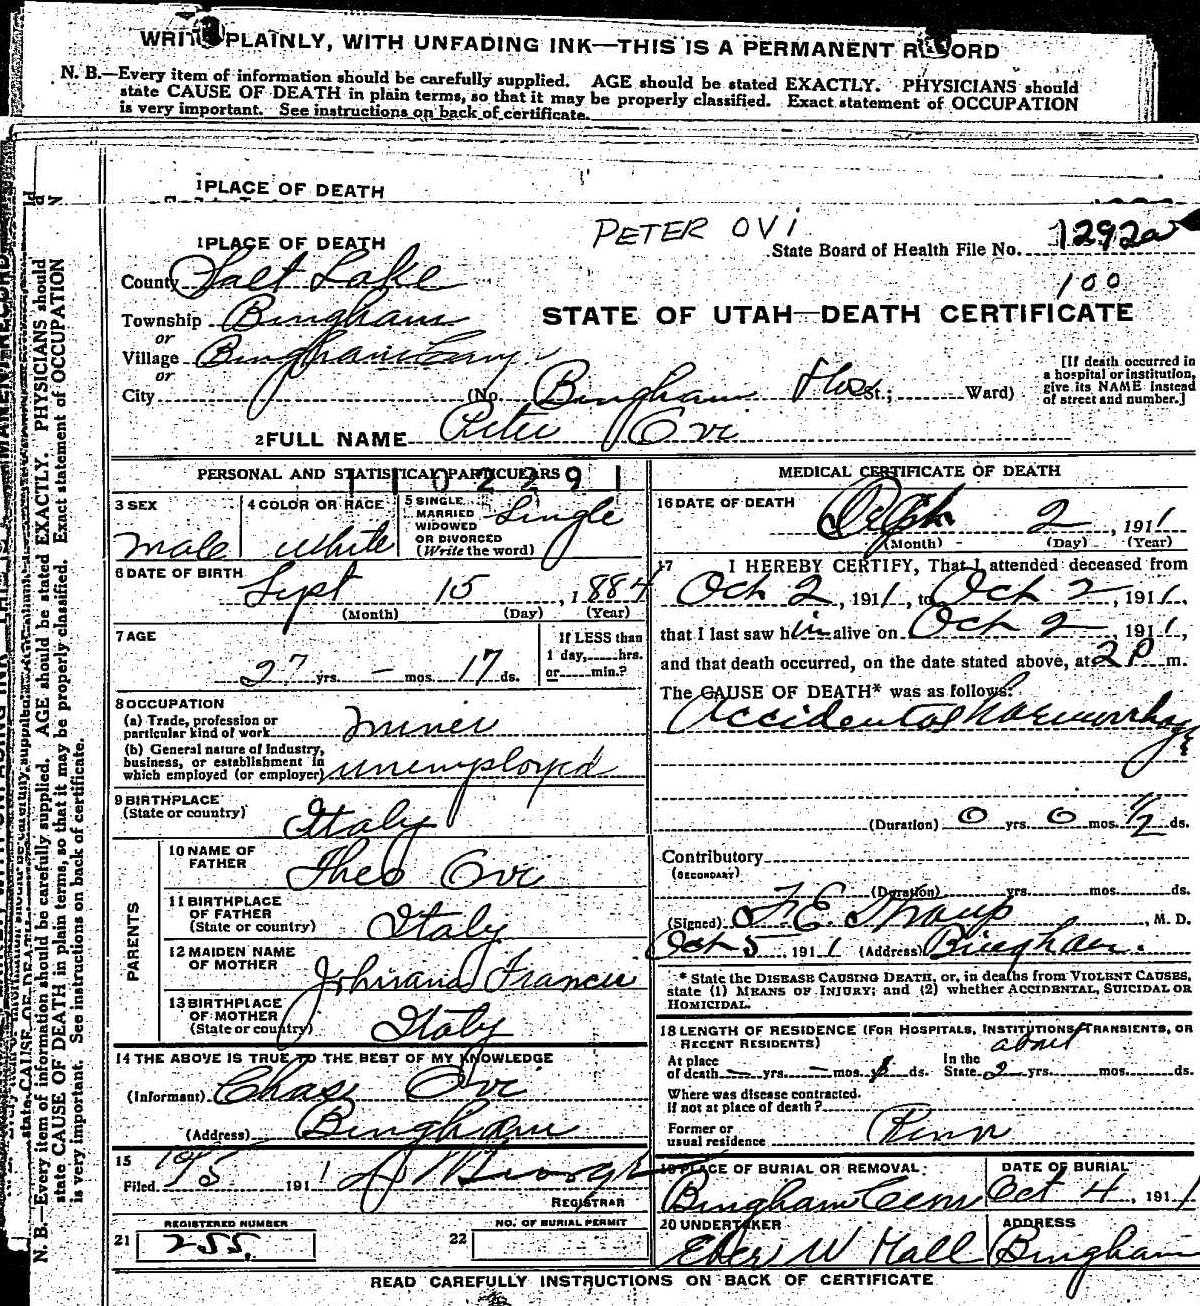 WRITE PLAINLY, WITH UNFADING INK—THIS IS A PERMANENT RECORD
N. B.—Every item of information should be carefully supplied. AGE should be stated EXACTLY. PHYSICIANS should
state CAUSE OF DEATH in plain terms, so that it may be properly classified. Exact statement of OCCUPATION
is very important. See instructions on back of certificate.
1 PLACE OF DEATH
PETER OVI
1 PLACE OF DEATH
State Board of Health File No. 1292a
100
County Salt Lake
STATE OF UTAH—DEATH CERTIFICATE
Township Bingham
or
Village Bingham Cany
or
City (No. Bingham Hos St.; Ward)
[If death occurred in
a hospital or institution,
give its NAME instead
of street and number.]
2 FULL NAME Peter Ovi
PERSONAL AND STATISTICAL PARTICULARS
1102291
3 SEX
male
4 COLOR OR RACE
white
5 SINGLE
MARRIED
WIDOWED
OR DIVORCED
(Write the word)
Single
6 DATE OF BIRTH
Sept 15, 1884
(Month) (Day) (Year)
7 AGE
27 yrs. — mos. 17 ds.
If LESS than
1 day, hrs.
or min.?
8 OCCUPATION
(a) Trade, profession or
particular kind of work
miner
(b) General nature of Industry,
business, or establishment in
which employed (or employer)
unemployed
9 BIRTHPLACE
(State or country)
Italy
PARENTS
10 NAME OF
FATHER
Theo Ovi
11 BIRTHPLACE
OF FATHER
(State or country)
Italy
12 MAIDEN NAME
OF MOTHER
13 BIRTHPLACE
OF MOTHER
(State or country)
Italy
14 THE ABOVE IS TRUE TO THE BEST OF MY KNOWLEDGE
(Informant) Chase Ovi
(Address) Bingham
15
Filed 10/5 1911
REGISTRAR
REGISTERED NUMBER
21 255.
NO. OF BURIAL PERMIT
22
MEDICAL CERTIFICATE OF DEATH
16 DATE OF DEATH
2, 1911
(Month) (Day) (Year)
17 I HEREBY CERTIFY, That I attended deceased from
Oct 2, 1911, to Oct 2, 1911,
that I last saw him alive on Oct 2, 1911,
and that death occurred, on the date stated above, at 2 P m.
The CAUSE OF DEATH* was as follows:
Accidental haemorrhage
(Duration) 0 yrs. 0 mos. 1/2 ds.
Contributory
(SECONDARY)
(Duration) yrs. mos. ds.
(Signed) F. E. Straup, M. D.
Oct 5, 1911 (Address) Bingham.
* State the DISEASE CAUSING DEATH, or, in deaths from VIOLENT CAUSES,
state (1) MEANS OF INJURY; and (2) whether ACCIDENTAL, SUICIDAL OR
HOMICIDAL.
18 LENGTH OF RESIDENCE (FOR HOSPITALS, INSTITUTIONS, TRANSIENTS, OR
RECENT RESIDENTS)
about
At place
of death — yrs. — mos. ds.
In the
State 2 yrs. mos. ds.
Where was disease contracted.
if not at place of death?
Former or
usual residence Penn
19 PLACE OF BURIAL OR REMOVAL:
Bingham Cem
DATE OF BURIAL
Oct 4, 1911
20 UNDERTAKER
Eber W Hall
ADDRESS
Bingham
READ CAREFULLY INSTRUCTIONS ON BACK OF CERTIFICATE
N. B.—Every item of information should be carefully supplied. AGE should be stated EXACTLY. PHYSICIANS should
state CAUSE OF DEATH in plain terms, so that it may be properly classified. Exact statement of OCCUPATION
is very important. See instructions on back of certificate.